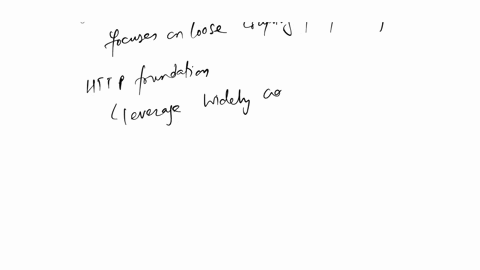 focuses on loose
HTTP foundation
(leverage widely